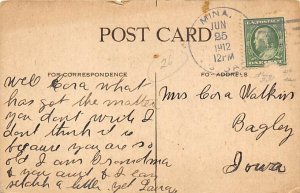 POST CARD
MINA,
JUN
25
1912
12 PM
FOR CORRESPONDENCE
FOR ADDRESS
Well Cora what
has got the matter
you don't write I
don't think it is
because you are so
old I am Grandma
& you aunt & I can
scratch a letter yet
Mrs Cora Watkins
Bagley
Iowa